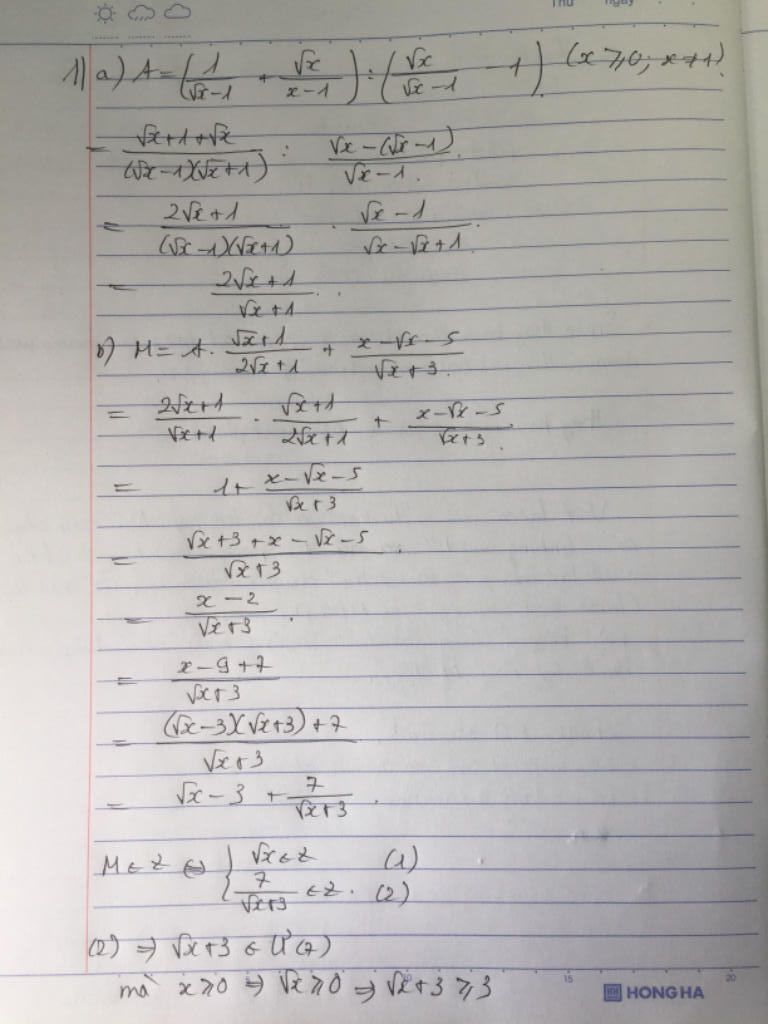 Thứ ngày
1) a) A = (1/(√x-1) + √x/(x-1)) : (√x/(√x-1) - 1) (x ⩾ 0; x ≠ 1).
= (√x+1+√x)/((√x-1)(√x+1)) : (√x-(√x-1))/(√x-1).
= (2√x+1)/((√x-1)(√x+1)) . (√x-1)/(√x-√x+1).
= (2√x+1)/(√x+1).
b) M = A. (√x+1)/(2√x+1) + (x-√x-5)/(√x+3).
= (2√x+1)/(√x+1) . (√x+1)/(2√x+1) + (x-√x-5)/(√x+3).
= 1+ (x-√x-5)/(√x+3)
= (√x+3+x-√x-5)/(√x+3).
= (x-2)/(√x+3).
= (x-9+7)/(√x+3)
= ((√x-3)(√x+3)+7)/(√x+3)
= √x-3 + 7/(√x+3).
M ∈ Z ⇔ { √x ∈ Z (1)
7/(√x+3) ∈ Z. (2)
(2) ⇒ √x+3 ∈ Ư(7)
mà x ⩾ 0 ⇒ √x ⩾ 0 ⇒ √x+3 ⩾ 3
15 20
HONG HA